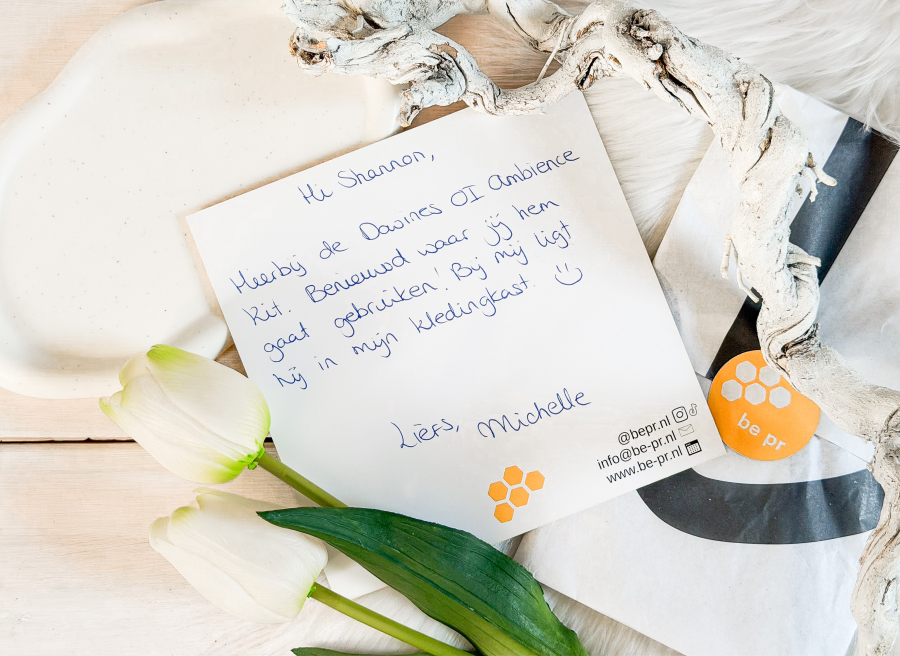 Hi Shannon,
Hierbij de Davines OI Ambience
Kit. Benieuwd waar jij hem
gaat gebruiken! Bij mij ligt
hij in mijn kledingkast. :)
Liefs, Michelle
@bepr.nl
info@be-pr.nl
www.be-pr.nl
be pr